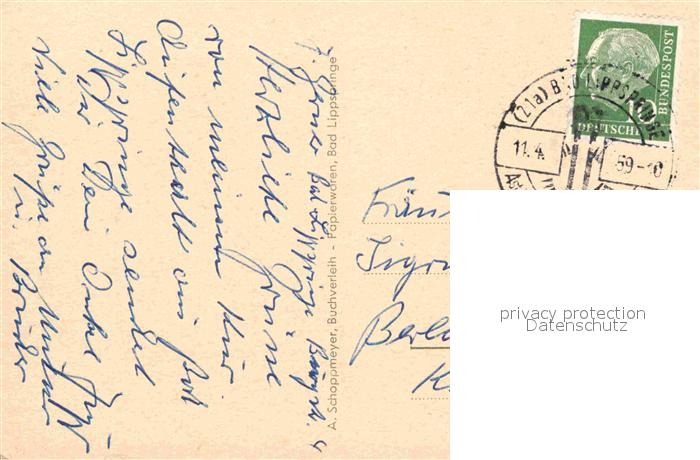 Herzliche Grüsse
von meinem Kur
Aufenthalt aus Bad
Lippspringe sendet
Dir Dein Onkel
Viele Grüsse an Mutter
u. Bruder
A. Schoppmeyer, Buchverleih - Papierwaren, Bad Lippspringe
(21a) BAD LIPPSPRINGE
11.4. 59-10
DEUTSCHE
BUNDESPOST
Berli
privacy protection
Datenschutz